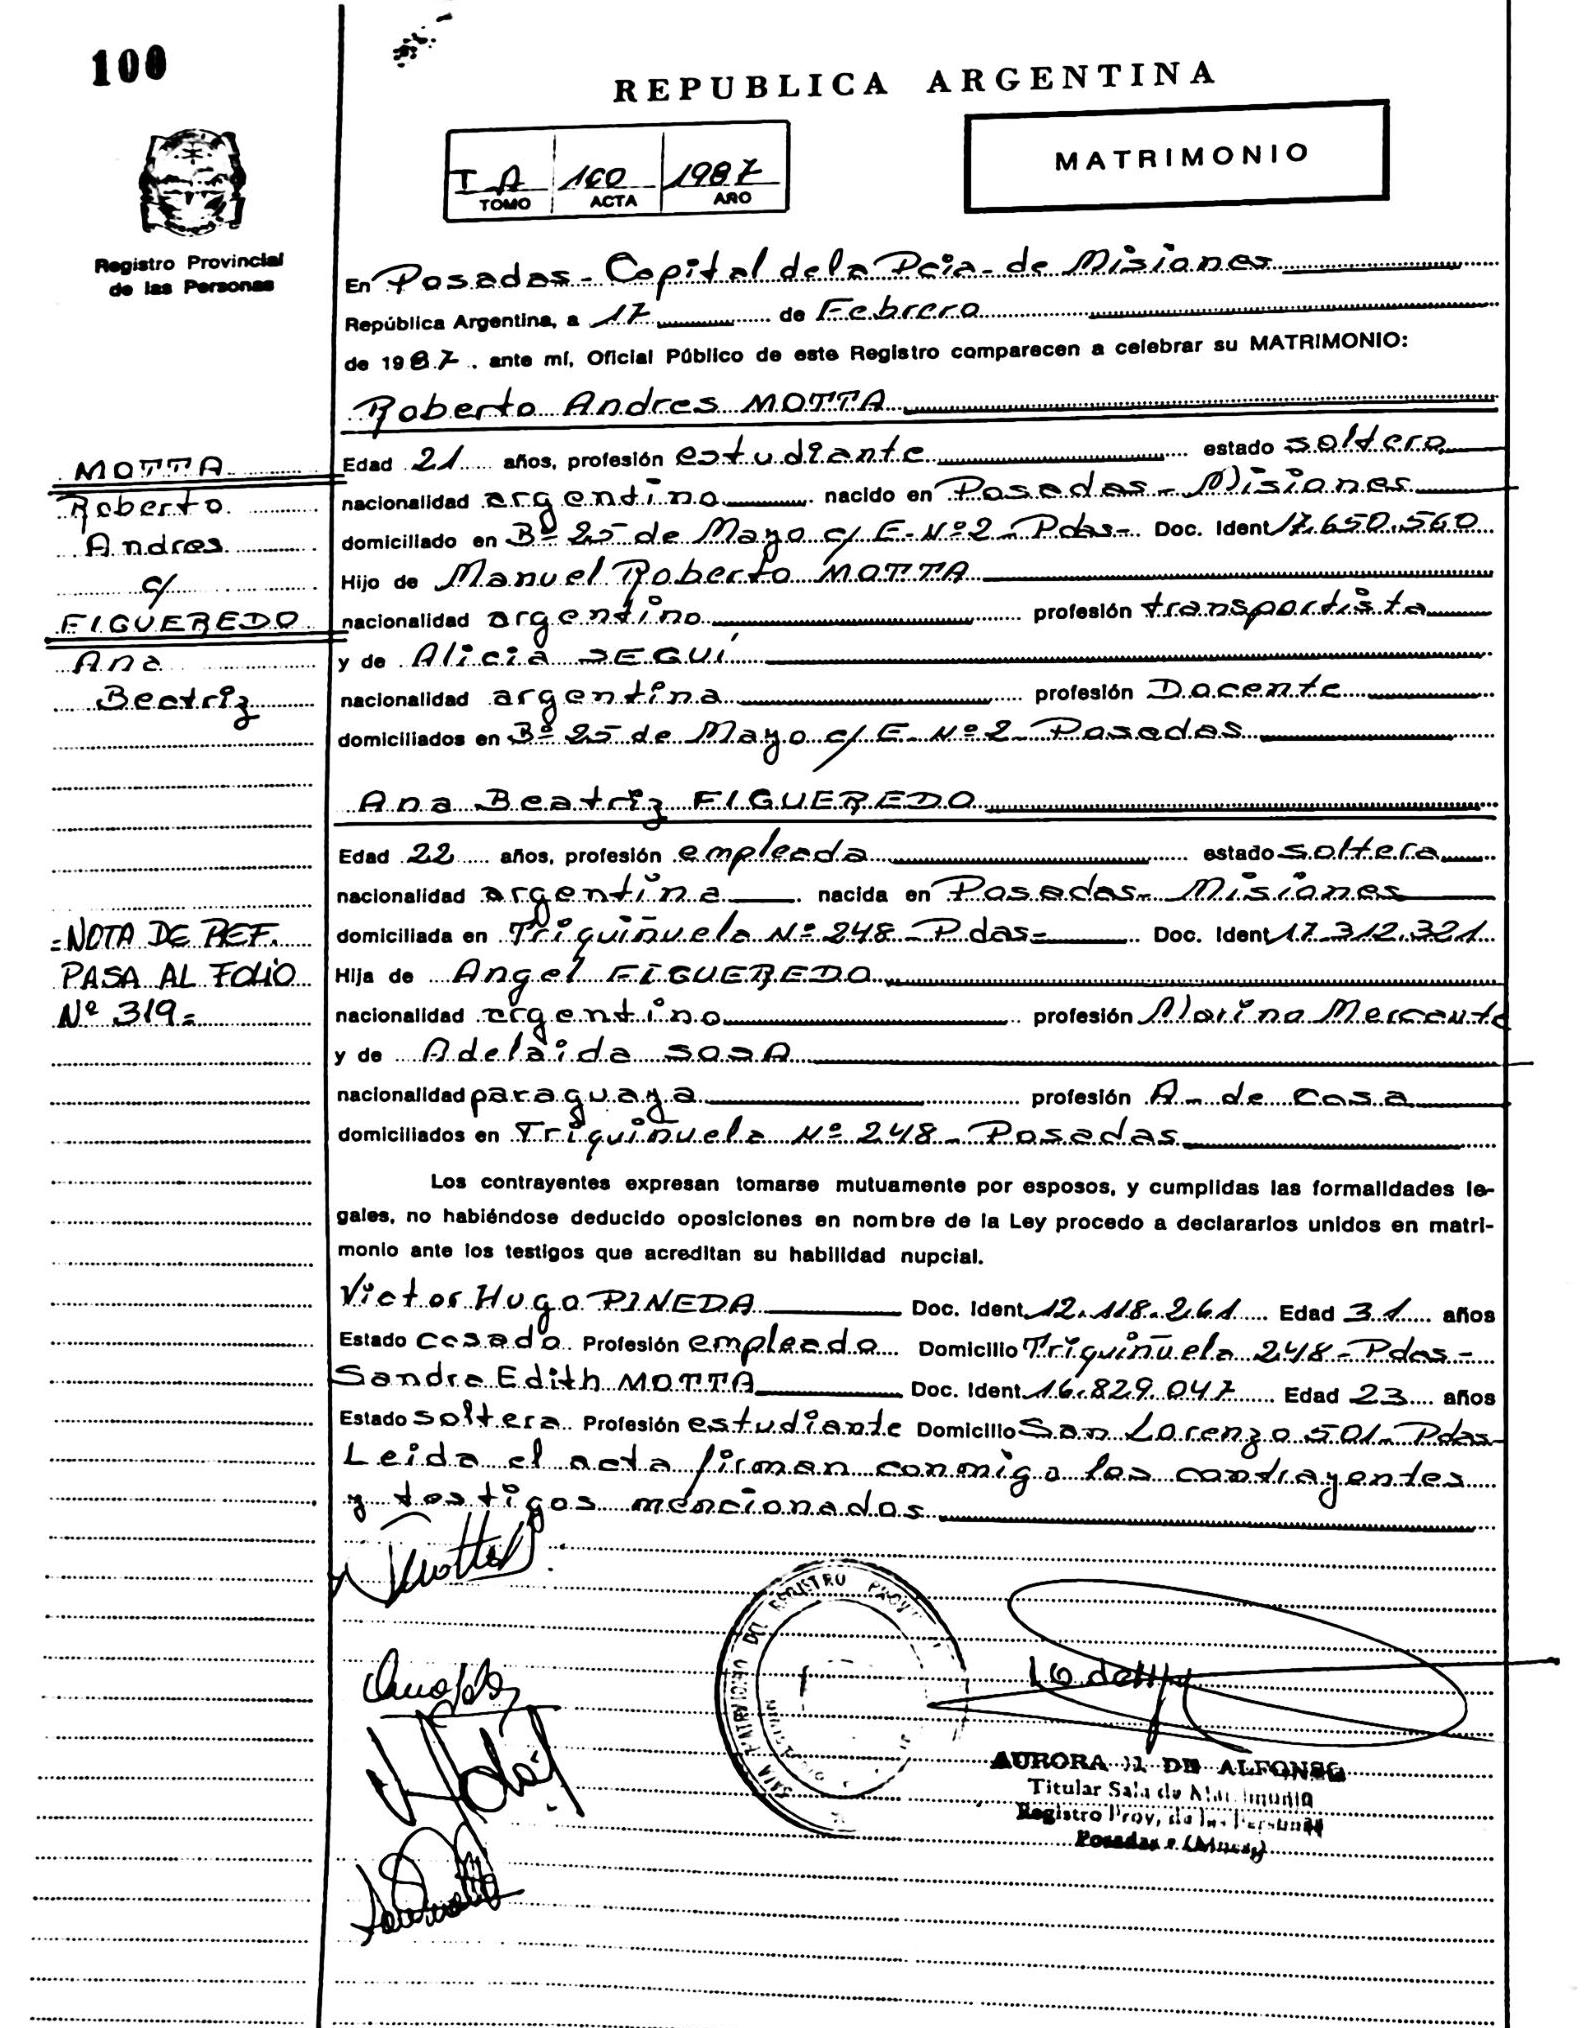 100
REPUBLICA ARGENTINA
MATRIMONIO
I A 100 1987
TOMO ACTA AÑO
Registro Provincial
de las Personas
En Posadas - Capital de la Pcia - de Misiones
República Argentina, a 17 de Febrero
de 1987. ante mí, Oficial Público de este Registro comparecen a celebrar su MATRIMONIO:
Roberto Andres MOTTA
MOTTA
Roberto
Andres
c/
FIGUEREDO
Ana
Beatriz
Edad 21 años, profesión estudiante estado soltero
nacionalidad argentino nacido en Posadas - Misiones
domiciliado en Bº 25 de Mayo c/ E. Nº 2 - Pdas - Doc. Ident 17.650.560
Hijo de Manuel Roberto MOTTA
nacionalidad argentino profesión transportista
y de Alicia SEGUÍ
nacionalidad argentina profesión Docente
domiciliados en Bº 25 de Mayo c/ E. Nº 2 - Posadas
Ana Beatriz FIGUEREDO
Edad 22 años, profesión empleada estado soltera
nacionalidad argentina nacida en Posadas - Misiones
domiciliada en Triquiñuela Nº 248 - Pdas - Doc. Ident 17.312.321
Hija de Angel FIGUEREDO
nacionalidad argentino profesión Marino Mercante
y de Adelaida SOSA
nacionalidad paraguaya profesión A - de Casa
domiciliados en Triquiñuela Nº 248 - Posadas
= NOTA DE REF.
PASA AL FOLIO
Nº 319 =
Los contrayentes expresan tomarse mutuamente por esposos, y cumplidas las formalidades le-
gales, no habiéndose deducido oposiciones en nombre de la Ley procedo a declararlos unidos en matri-
monio ante los testigos que acreditan su habilidad nupcial.
Victor Hugo PINEDA Doc. Ident. 12.118.261 Edad 31 años
Estado casado Profesión empleado Domicilio Triquiñuela 248 - Pdas -
Sandra Edith MOTTA Doc. Ident. 16.829.047 Edad 23 años
Estado soltera Profesión estudiante Domicilio San Lorenzo 501 - Pdas -
Leida el acta firman conmigo los contrayentes
y testigos mencionados
AURORA DE ALFONSO
Titular Sala de Matrimonio
Registro Prov. de las Personas
Posadas (Mnes)